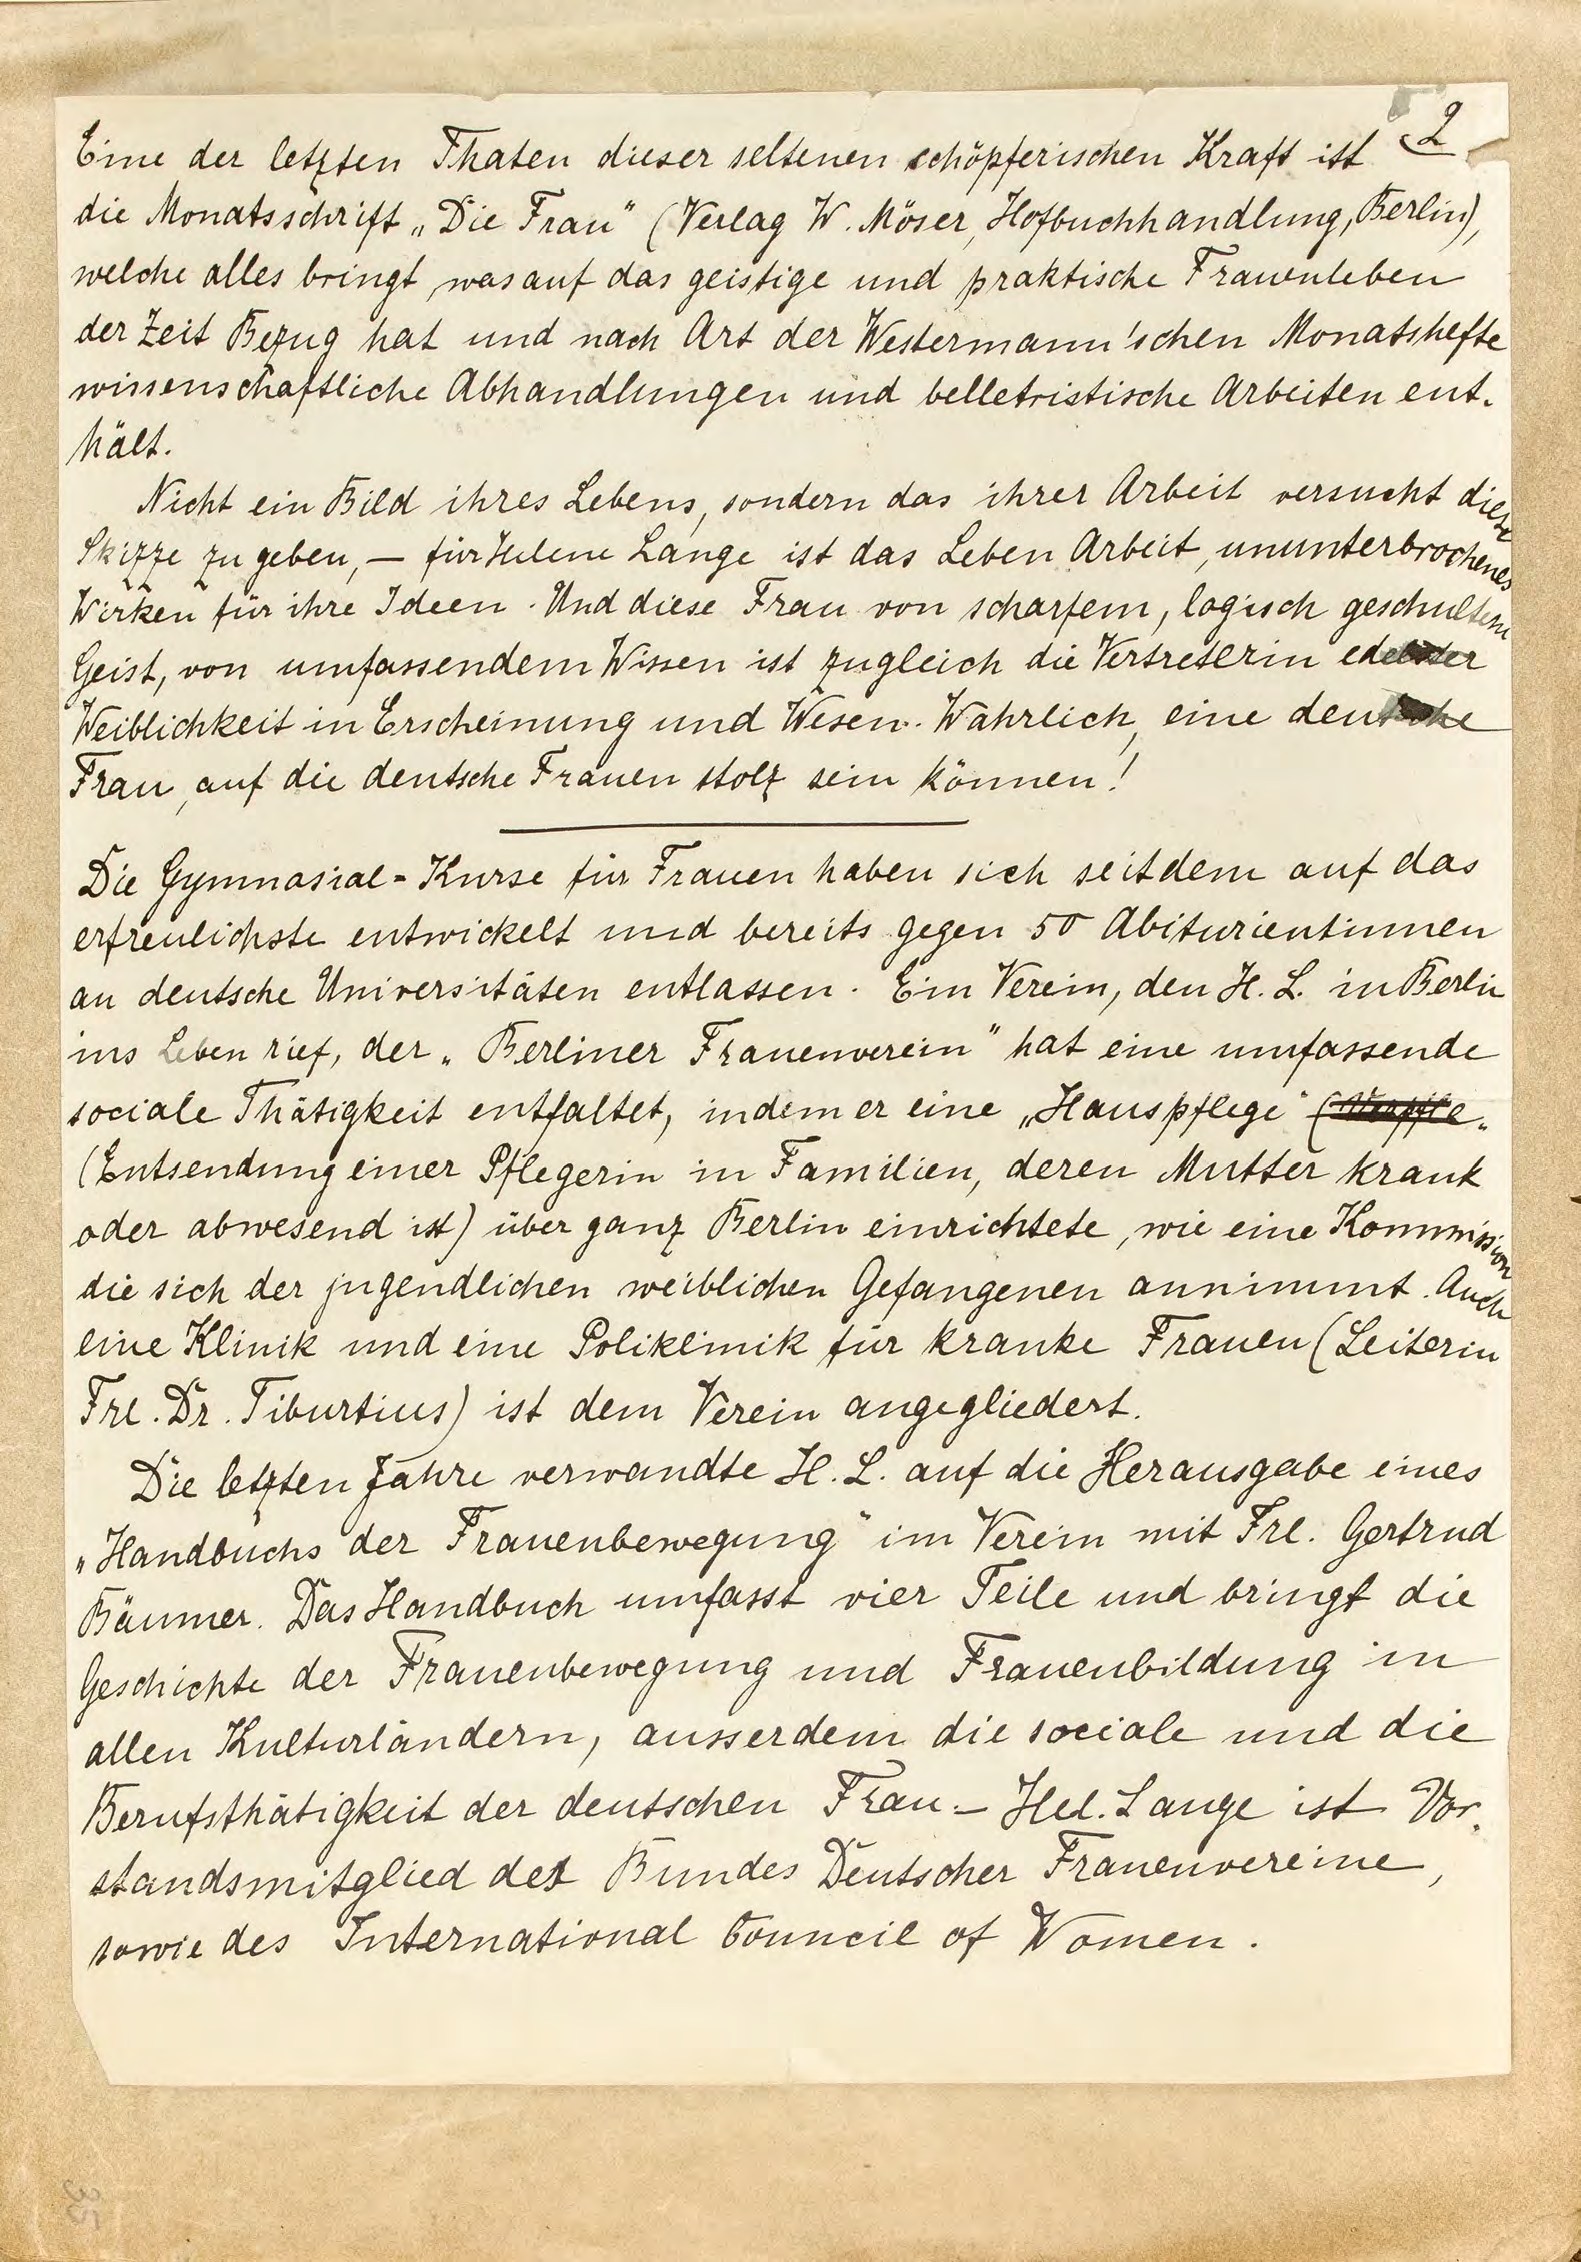 2
Eine der letzten Thaten dieser seltenen schöpferischen Kraft ist
die Monatsschrift „Die Frau" (Verlag W. Möser, Hofbuchhandlung, Berlin),
welche alles bringt, was auf das geistige und praktische Frauenleben
der Zeit Bezug hat und nach Art der Westermann'schen Monatshefte
wissenschaftliche Abhandlungen und belletristische Arbeiten ent-
hält.
Nicht ein Bild ihres Lebens, sondern das ihrer Arbeit versucht diese
Skizze zu geben, — für Helene Lange ist das Leben Arbeit, ununterbrochenes
Wirken für ihre Ideen. Und diese Frau von scharfem, logisch geschultem
Geist, von umfassendem Wissen ist zugleich die Vertreterin edelster
Weiblichkeit in Erscheinung und Wesen. Wahrlich, eine deutsche
Frau, auf die deutsche Frauen stolz sein können!
Die Gymnasial-Kurse für Frauen haben sich seitdem auf das
erfreulichste entwickelt und bereits gegen 50 Abiturientinnen
an deutsche Universitäten entlassen. Ein Verein, den H. L. in Berlin
ins Leben rief, der „Berliner Frauenverein" hat eine umfassende
sociale Thätigkeit entfaltet, indem er eine „Hauspflege"
(Entsendung einer Pflegerin in Familien, deren Mutter krank
oder abwesend ist) über ganz Berlin einrichtete, wie eine Kommission
die sich der jugendlichen weiblichen Gefangenen annimmt. Auch
eine Klinik und eine Poliklinik für kranke Frauen (Leiterin
Frl. Dr. Tiburtius) ist dem Verein angegliedert.
Die letzten Jahre verwandte H. L. auf die Herausgabe eines
„Handbuchs der Frauenbewegung" im Verein mit Frl. Gertrud
Bäumer. Das Handbuch umfasst vier Teile und bringt die
Geschichte der Frauenbewegung und Frauenbildung in
allen Kulturländern, ausserdem die sociale und die
Berufsthätigkeit der deutschen Frau. — Hel. Lange ist Vor-
standsmitglied des Bundes Deutscher Frauenvereine,
sowie des International Council of Women.
35